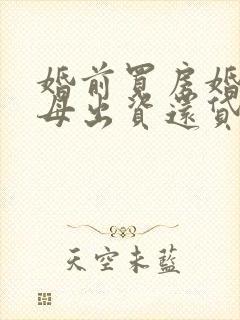 婚前買房婚
母出資還貸
天空未藍